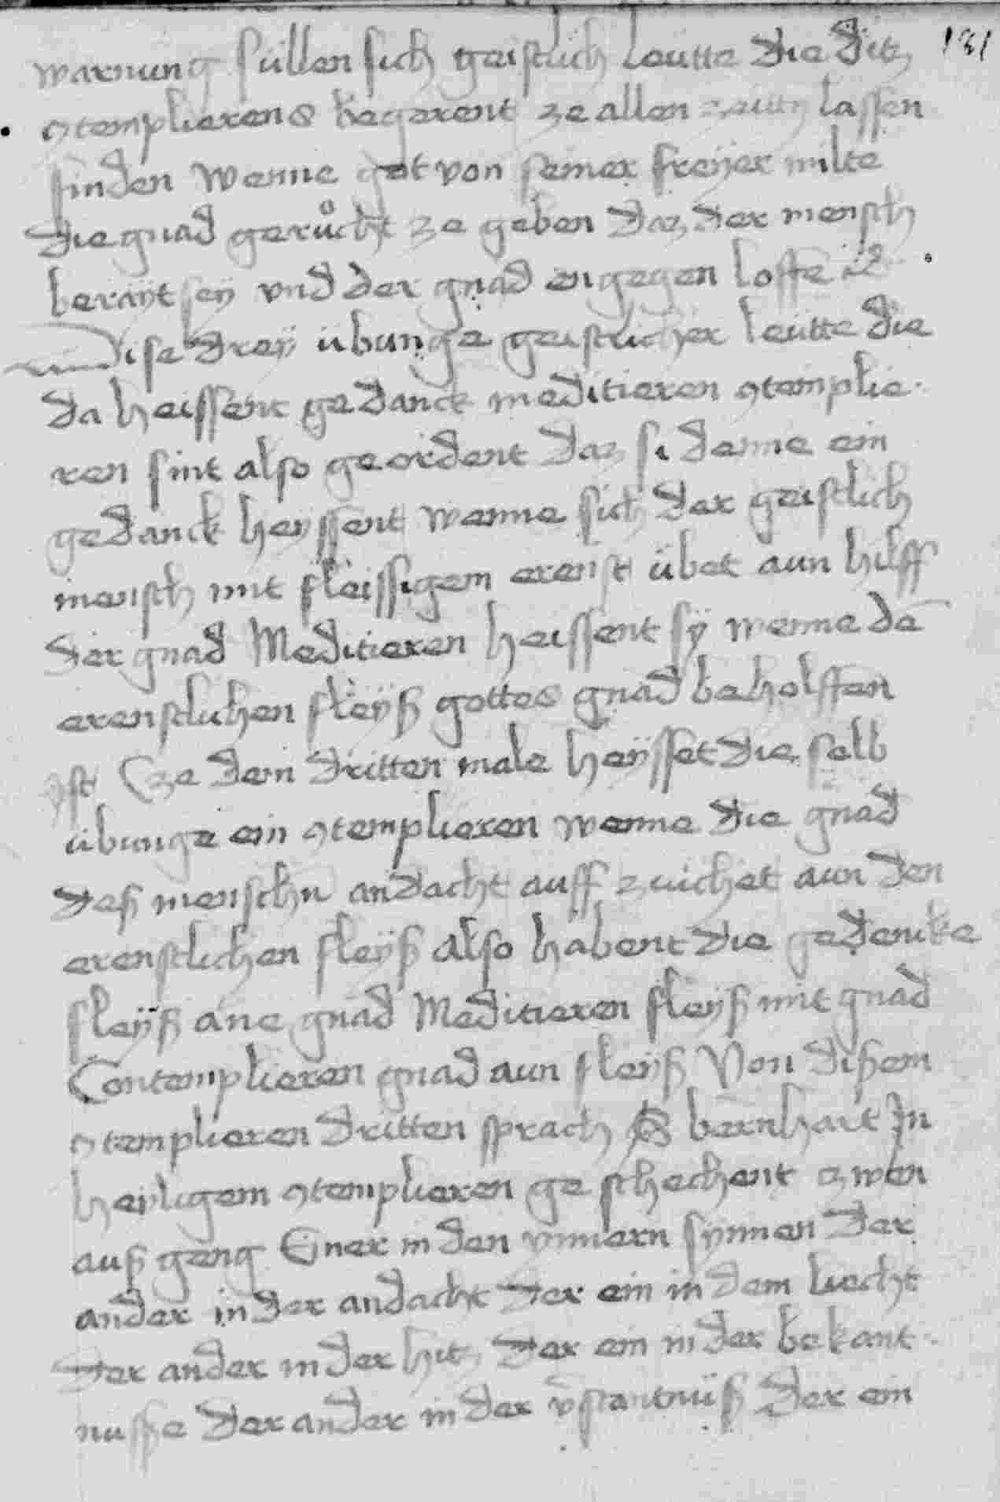 warnung süllen sich geistlich leütte die ditz 181
ꝯtemplierens begerent ze allen zeittn lassen
finden wenne got von seiner freyer milte
die gnad gerůcht ze geben daz der mensch
berayt sey vnd der gnad engegen loffe
dise dreÿ übunge geistlicher leütte die
da heissent gedanck meditieren ꝯtemplie-
ren sint also geordent daz si denne ein
gedanck heyssent wenne sich der geistlich
mensch mit fleissigem erenst übet aun hilff
der gnad Meditieren heissent sÿ wenne dē
erenstlichen fleÿß gottes gnad beholffen
ÿst ze dem dritten male heÿsset die selb
übunge ein ꝯtemplieren wenne die gnad
deß menschn andacht auff zuichet aun den
erenstlichen fleÿß also habent die gedencke
fleÿß ane gnad Meditieren fleÿß mit gnad
Contemplieren gnad aun fleÿß Von disem
ꝯtemplieren dritten sprach S bernhart In
heyligem ꝯtemplieren geschechent zwen
auß geng Einer in den ynnern synnen der
ander in der andacht der ein in dem liecht
der ander in der hitz der ein in der bekant-
nusse der ander in der v̄stantnüß der ein